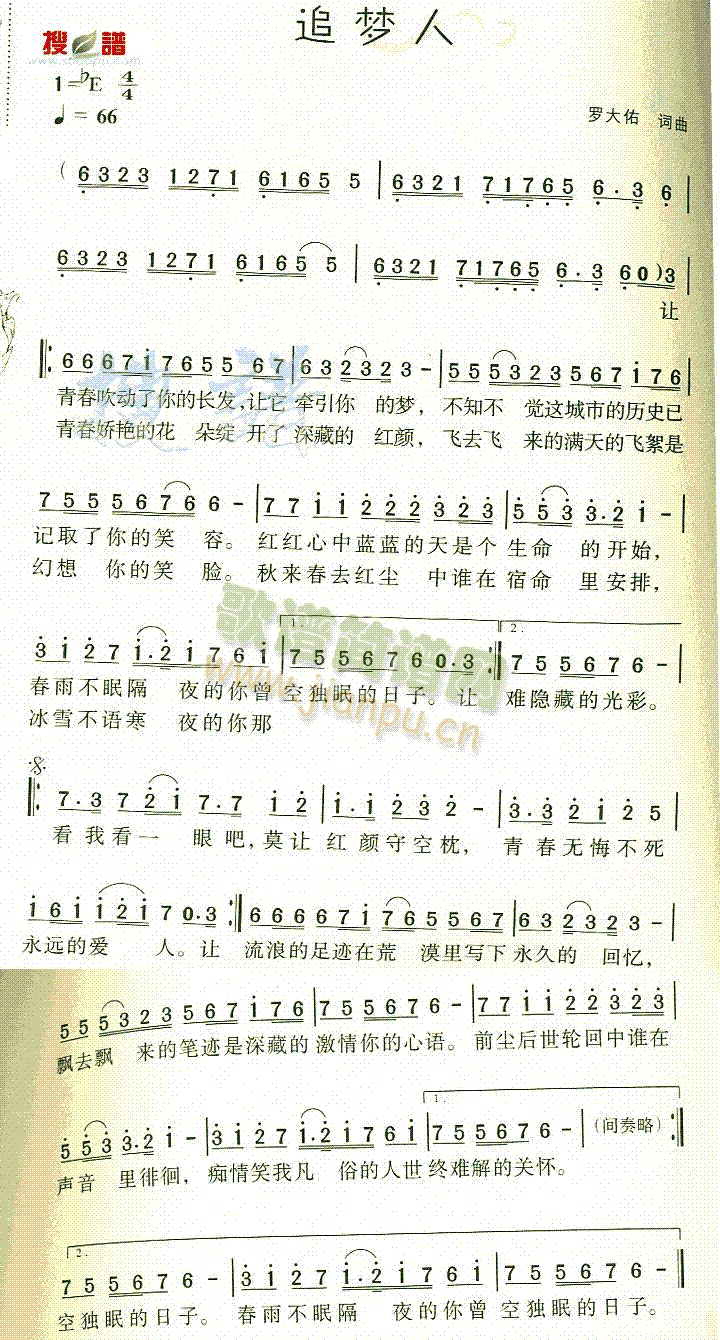 追梦人
搜 谱
1=♭E 4/4
♩= 66
罗大佑 词曲
(6323 1271 6165 5 | 6321 71765 6.3 6 |
6323 1271 6165 5 | 6321 71765 6.3 60)3 |
让
6667176555 67 | 632323- | 55532356717 6
青春吹动了你的长发,让它 牵引你 的梦, 不知不 觉这城市的历史已
青春娇艳的花 朵绽 开了 深藏的 红颜, 飞去飞 来的满天的飞絮是
7555676 6 - | 77 11 222 323 | 553 3.21 - |
记取了你的笑 容。 红红心中蓝蓝的天是个 生命 的开始,
幻想 你的笑 脸。 秋来春去红尘 中谁在 宿命 里安排,
1. 2.
3127 1.21761 | 7555676 0.3 :| 7555676 - |
春雨不眠隔 夜的你曾 空独眠的日子。 让 难隐藏的光彩。
冰雪不语寒 夜的你那
歌谱简谱网
www.jianpu.cn
7.3 7 21 7.7 12 | 1.1 232 - | 3.32125 |
看我看一 眼吧,莫让 红颜守空枕, 青春无悔不死
161 121 7 0.3 :| 66667 1 765567 | 632323 - |
永远的爱 人。让 流浪的足迹在荒 漠里写下 永久的 回忆,
55532356717 6 | 7555676 - | 771122323 |
飘去飘 来的笔迹是深藏的 激情你的心语。 前尘后世轮回中谁在
1.
553 3.21 - | 3127 1.21761 | 7555676 - | (间奏略) :|
声音 里徘徊, 痴情笑我凡 俗的人世 终难解的关怀。
2.
7555676 - | 3127 1.21 761 | 7555676 - |
空独眠的日子。 春雨不眠隔 夜的你曾 空独眠的日子。